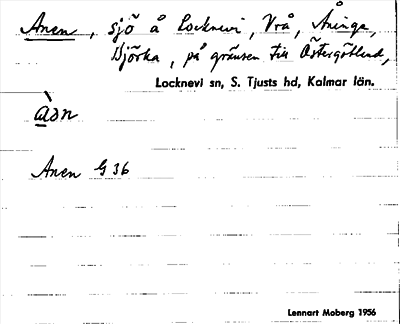 Anen, sjö å Locknevi, Vrå, Åninge,
Djörka, på gränsen till Östergötland,
Locknevi sn, S. Tjusts hd, Kalmar län.
àən
Anen G 36
Lennart Moberg 1956